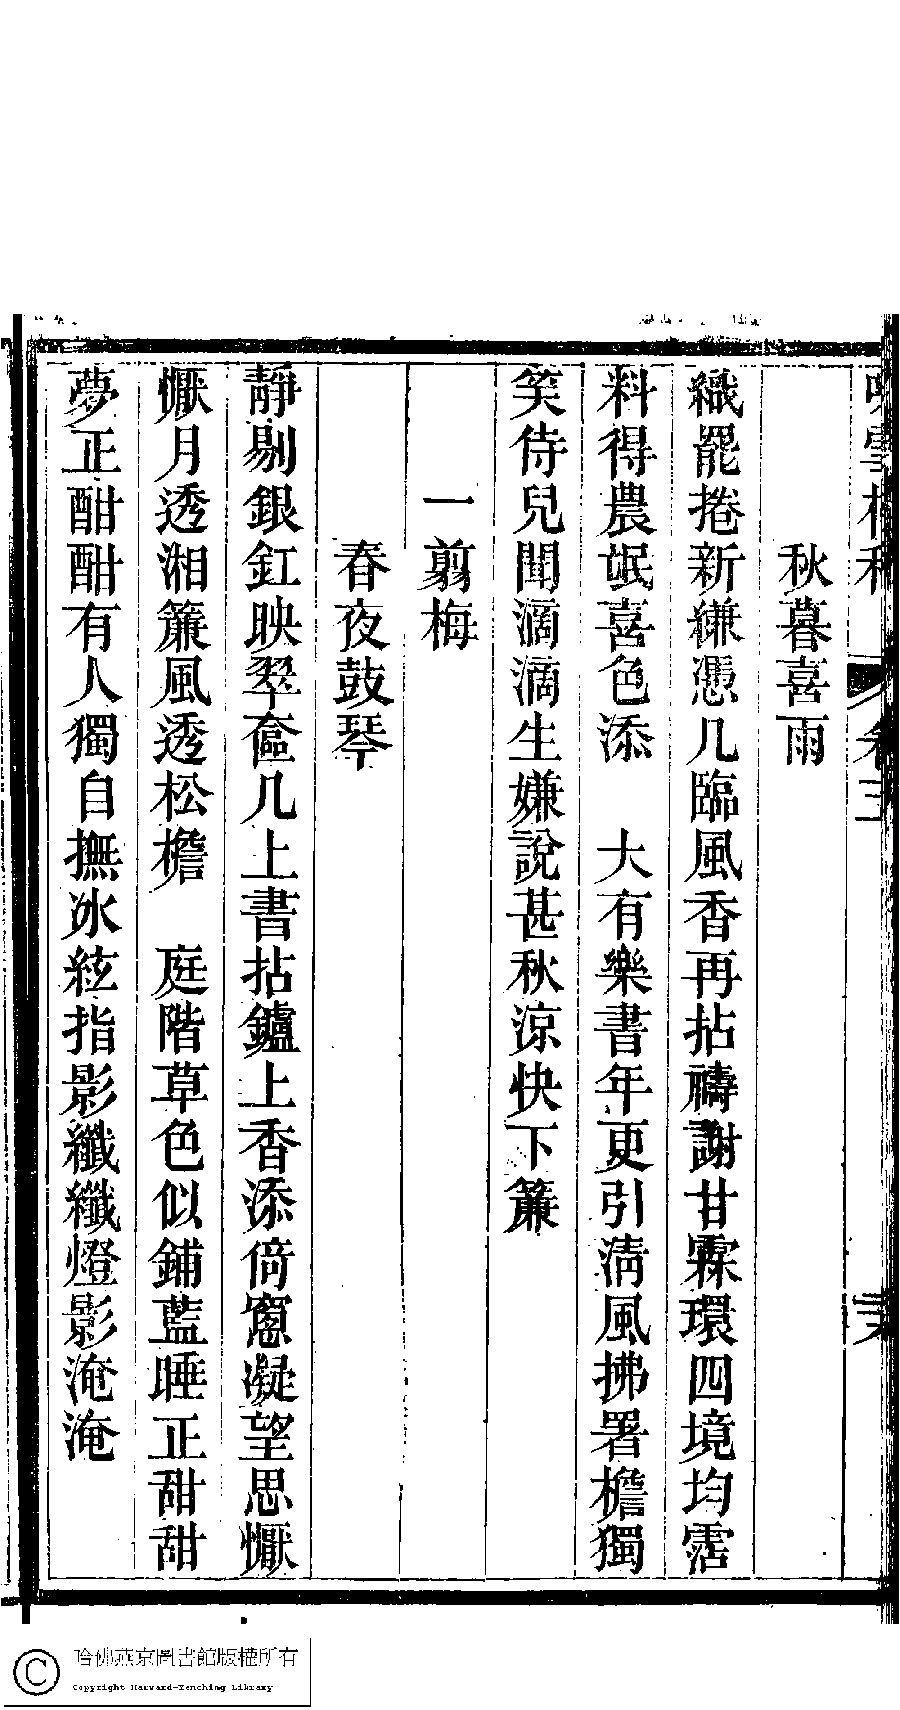 秋暮喜雨
織罷捲新縑憑几臨風香再拈禱謝甘霖環四境均霑
料得農氓喜色添　大有樂書年更引淸風拂署檐獨
笑侍兒聞滴滴生嫌說甚秋涼快下簾
一剪梅
春夜鼓琴
靜剔銀釭映翠奩几上書拈鑪上香添倚窻凝望思懨
懨月透湘簾風透松檐　庭階草色似鋪藍睡正甜甜
夢正酣酣有人獨自撫冰絃指影纖纖燈影淹淹
哈佛燕京圖書館版權所有
Copyright Harvard-Yenching Library